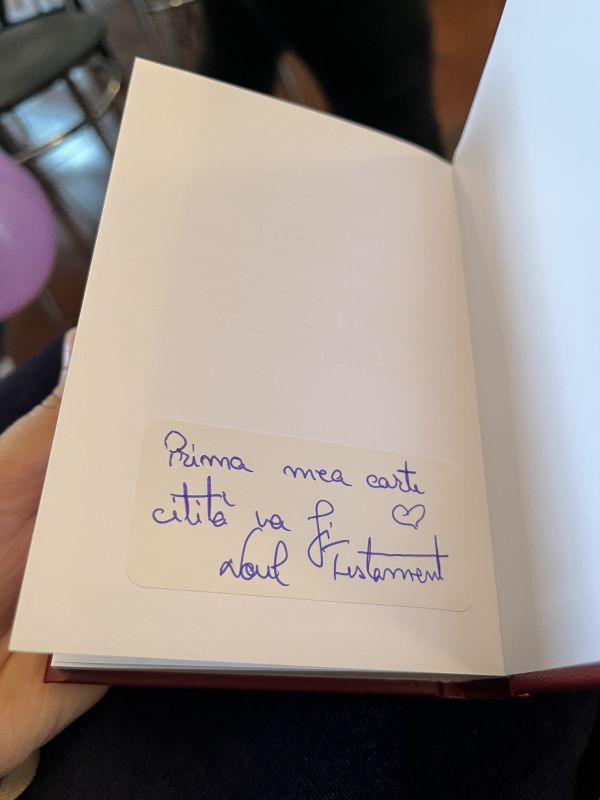 Prima mea carte
citită va fi ♡
Noul Testament